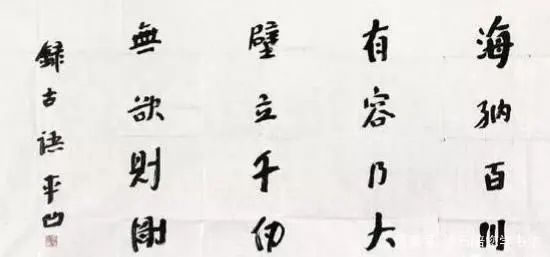 海納百川
有容乃大
壁立千仞
無欲則剛
録古語平凹